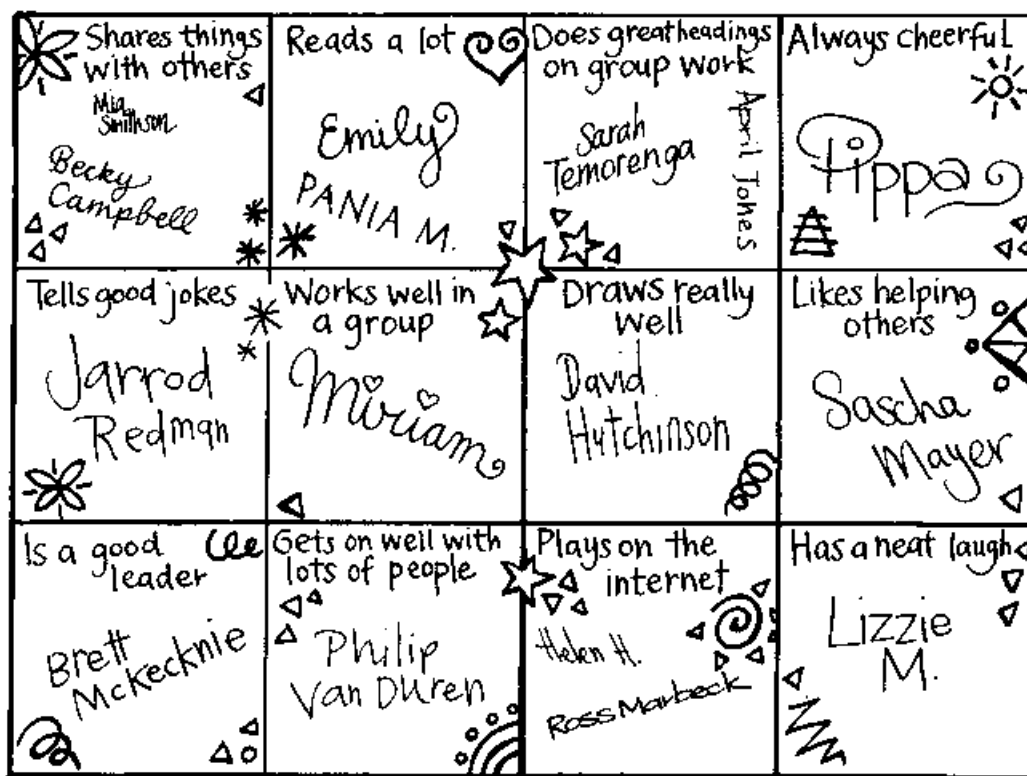 Shares things
with others
Mia
Smithson
Becky
Campbell
Reads a lot
Emily
PANIA M.
Does great headings
on group work
Sarah
Temorenga
April Jones
Always cheerful
Pippa
Tells good jokes
Jarrod
Redman
Works well in
a group
Miriam
Draws really
well
David
Hutchinson
Likes helping
others
Sascha
Mayer
Is a good
leader
Brett
McKecknie
Gets on well with
lots of people
Philip
Van Duren
Plays on the
internet
Helen H.
Ross Marbeck
Has a neat laugh
Lizzie
M.